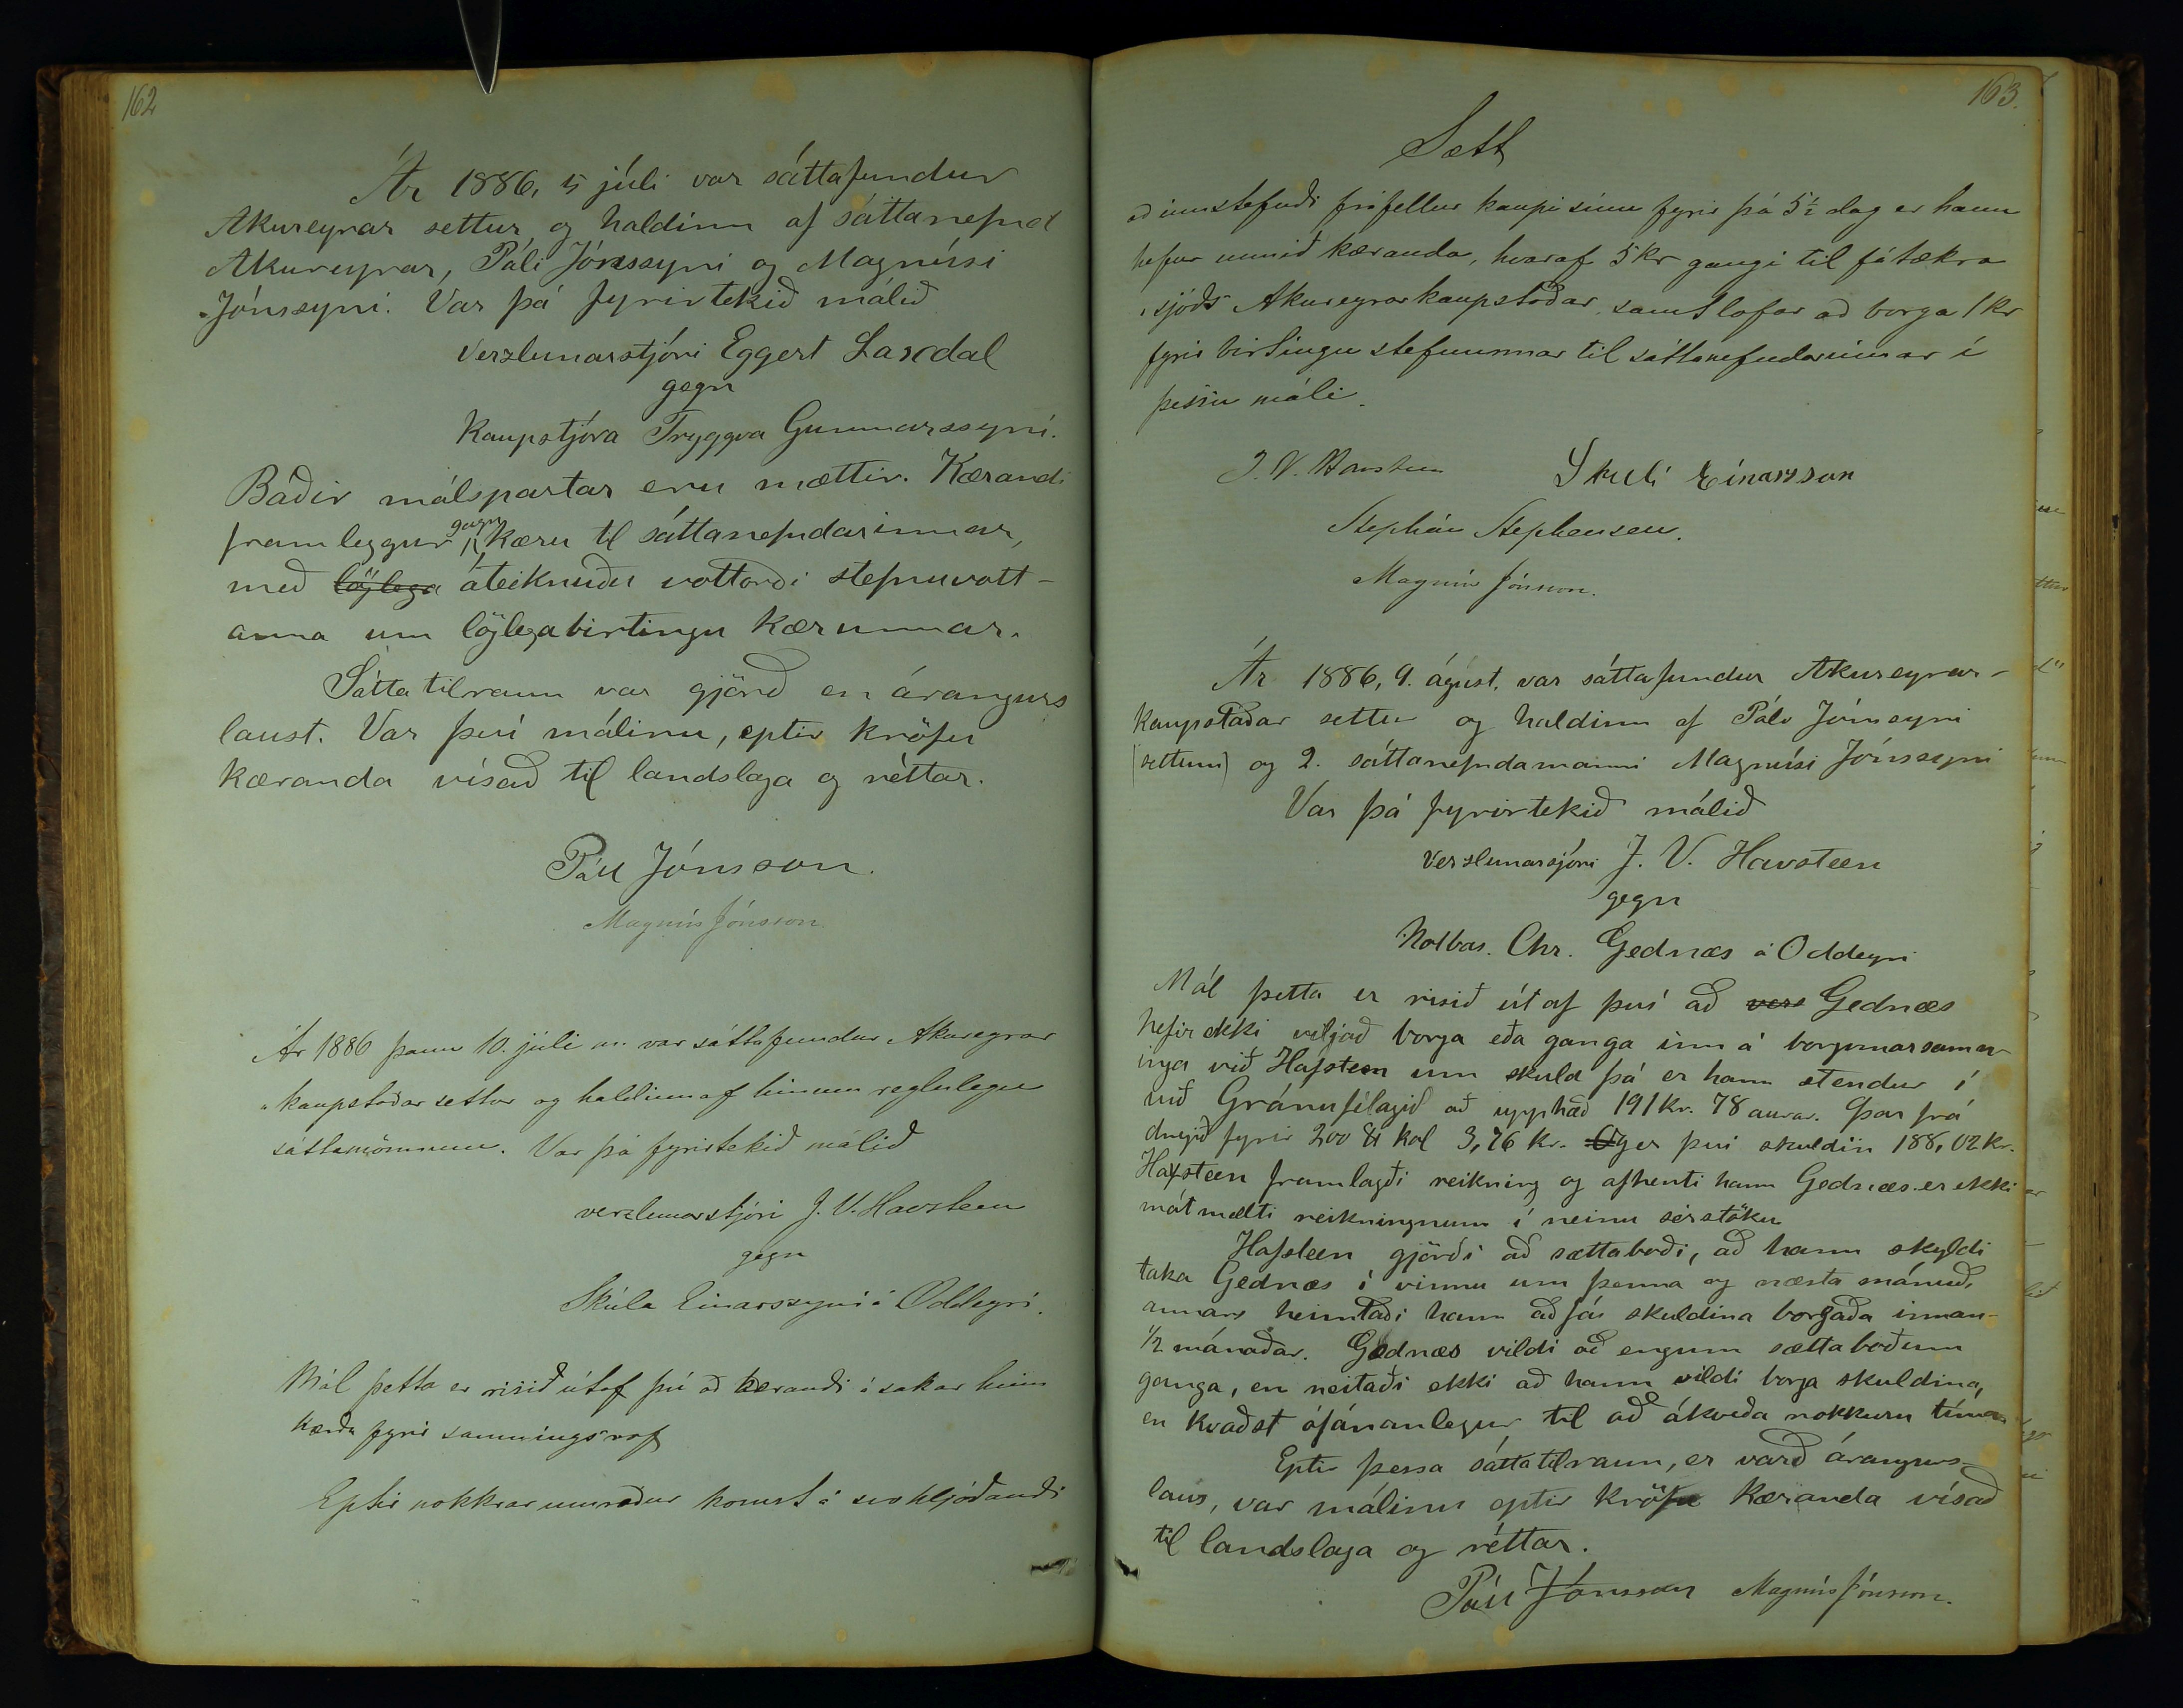 162
Ár 1886, 5 júli var sáttafundur
Akureyrar settur og haldinn af sáttanefnd
Akureyrar, Páli Jónssyni og Magnúsi
Jónssyni. Var þá fyrirtekið málið
Verzlunarstjóri Eggert Laxdal
gegn
Kaupstjóra Tryggva Gunnarssyni.
Báðir málspartar eru mættir. Kærandi
framleggur kæru til sáttanefndarinnar,
með löglega áteiknuðu vottorði stefnuvott-
anna um löglega birtingu kærunnar.
Sáttatilraun var gjörð en árangurs
laust. Var því málinu, eptir kröfu
kæranda vísað til landslaga og réttar.
Páll Jónsson.
Magnús Jónsson
Ár 1886 þann 10. júli var sáttafundur Akureyrar
kaupstaðar settur og haldinn af hinum reglulegu
sáttamönnum. Var þá fyrirtekið málið
verzlunarstjóri J. V. Havsteen
gegn
Skúla Einarssyni á Oddeyri.
Mál þetta er risið útaf því að kærandi ásakar hinn
kærða fyrir samningsrof
Eptir nokkrar umræður komst á svohljóðandi
163.
Sætt
að innstefndi frífellur kaupi sínu fyrir þá 5 1/2 dag er hann
hefur unnið kæranda, hvaraf 5 kr gangi til fátækra
sjóðs Akureyrarkaupstaðar, samt lofar að borga 1 kr
fyrir birtingu stefnunnar til sáttanefndarinnar í
þessu máli.
J. V. Havsteen Skuli Einarsson
Stephán Stephensen.
Magnús Jónsson.
Ár 1886, 9. ágúst. var sáttafundur Akureyrar-
kaupstaðar settur og haldinn af Páli Jónssyni
(settum) og 2. sáttanefndamanni Magnúsi Jónssyni
Var þá fyrirtekið málið
Verzlunarsjóri J. V. Havsteen
gegn
Chr. Gednæs á Oddeyri
Mál þetta er risið út af því að vers Gednæs
hefir ekki viljað borga eða ganga inn á borgunarsamn-
inga við Hafsteen um skuld þá er hann stendur í
við Gránufélagið að upphæð 191 kr. 78 aurar. Þar frá
dregið fyrir 200 ℔ kol 3,76 kr. Og er því skuldin 188,02 kr.
Hafsteen framlagði reikning og afhenti hann Gednæs er ekki
mótmælti reikningnum í neinu sérstöku
Hafsteen gjörði að sættaboði, að hann skyldi
taka Gednæs í vinnu um þenna og næsta mánuð,
annars heimtaði hann að fá skuldina borgaða innan
1/2 mánaðar. Gednæs vildi að engum sættaboðum
ganga, en neitaði ekki að hann vildi borga skuldina,
en kvaðst ófáanlegur til að ákveða nokkurn tíma
Eptir þessa sáttatilraun, er varð árangurs-
laus, var málinu eptir kröfu kæranda vísað
til landslaga og réttar.
Páll Jónsson Magnús Jónsson.